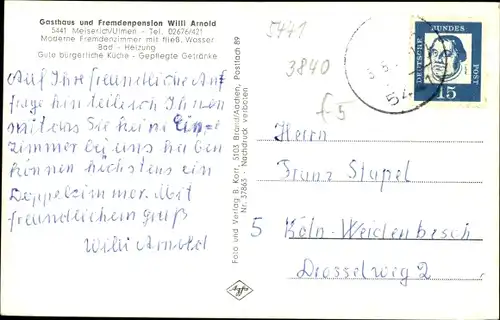 Gasthaus und Fremdenpension Willi Arnold
5441 Meiserich/Ulmen - Tel. 02676/421
Moderne Fremdenzimmer mit fließ. Wasser
Bad - Heizung
Gute bürgerliche Küche - Gepflegte Getränke
Auf Ihre freundliche Anf
frage hin teile ich Ihnen
mit das Sie keine Einze
zimmer bei uns haben
können höchstens ein
Doppelzimmer. Mit
freundlichem gruß
Willi Arnold
Foto und Verlag B. Kort, 5103 Brand/Aachen, Postfach 89
Nr. 37863 - Nachdruck verboten
Agfa
5441
3840
f 5
DEUTSCHE
BUNDES
15
Herrn
Franz Stupel
5 Köln-Weidenbesch
Drosselweg 2